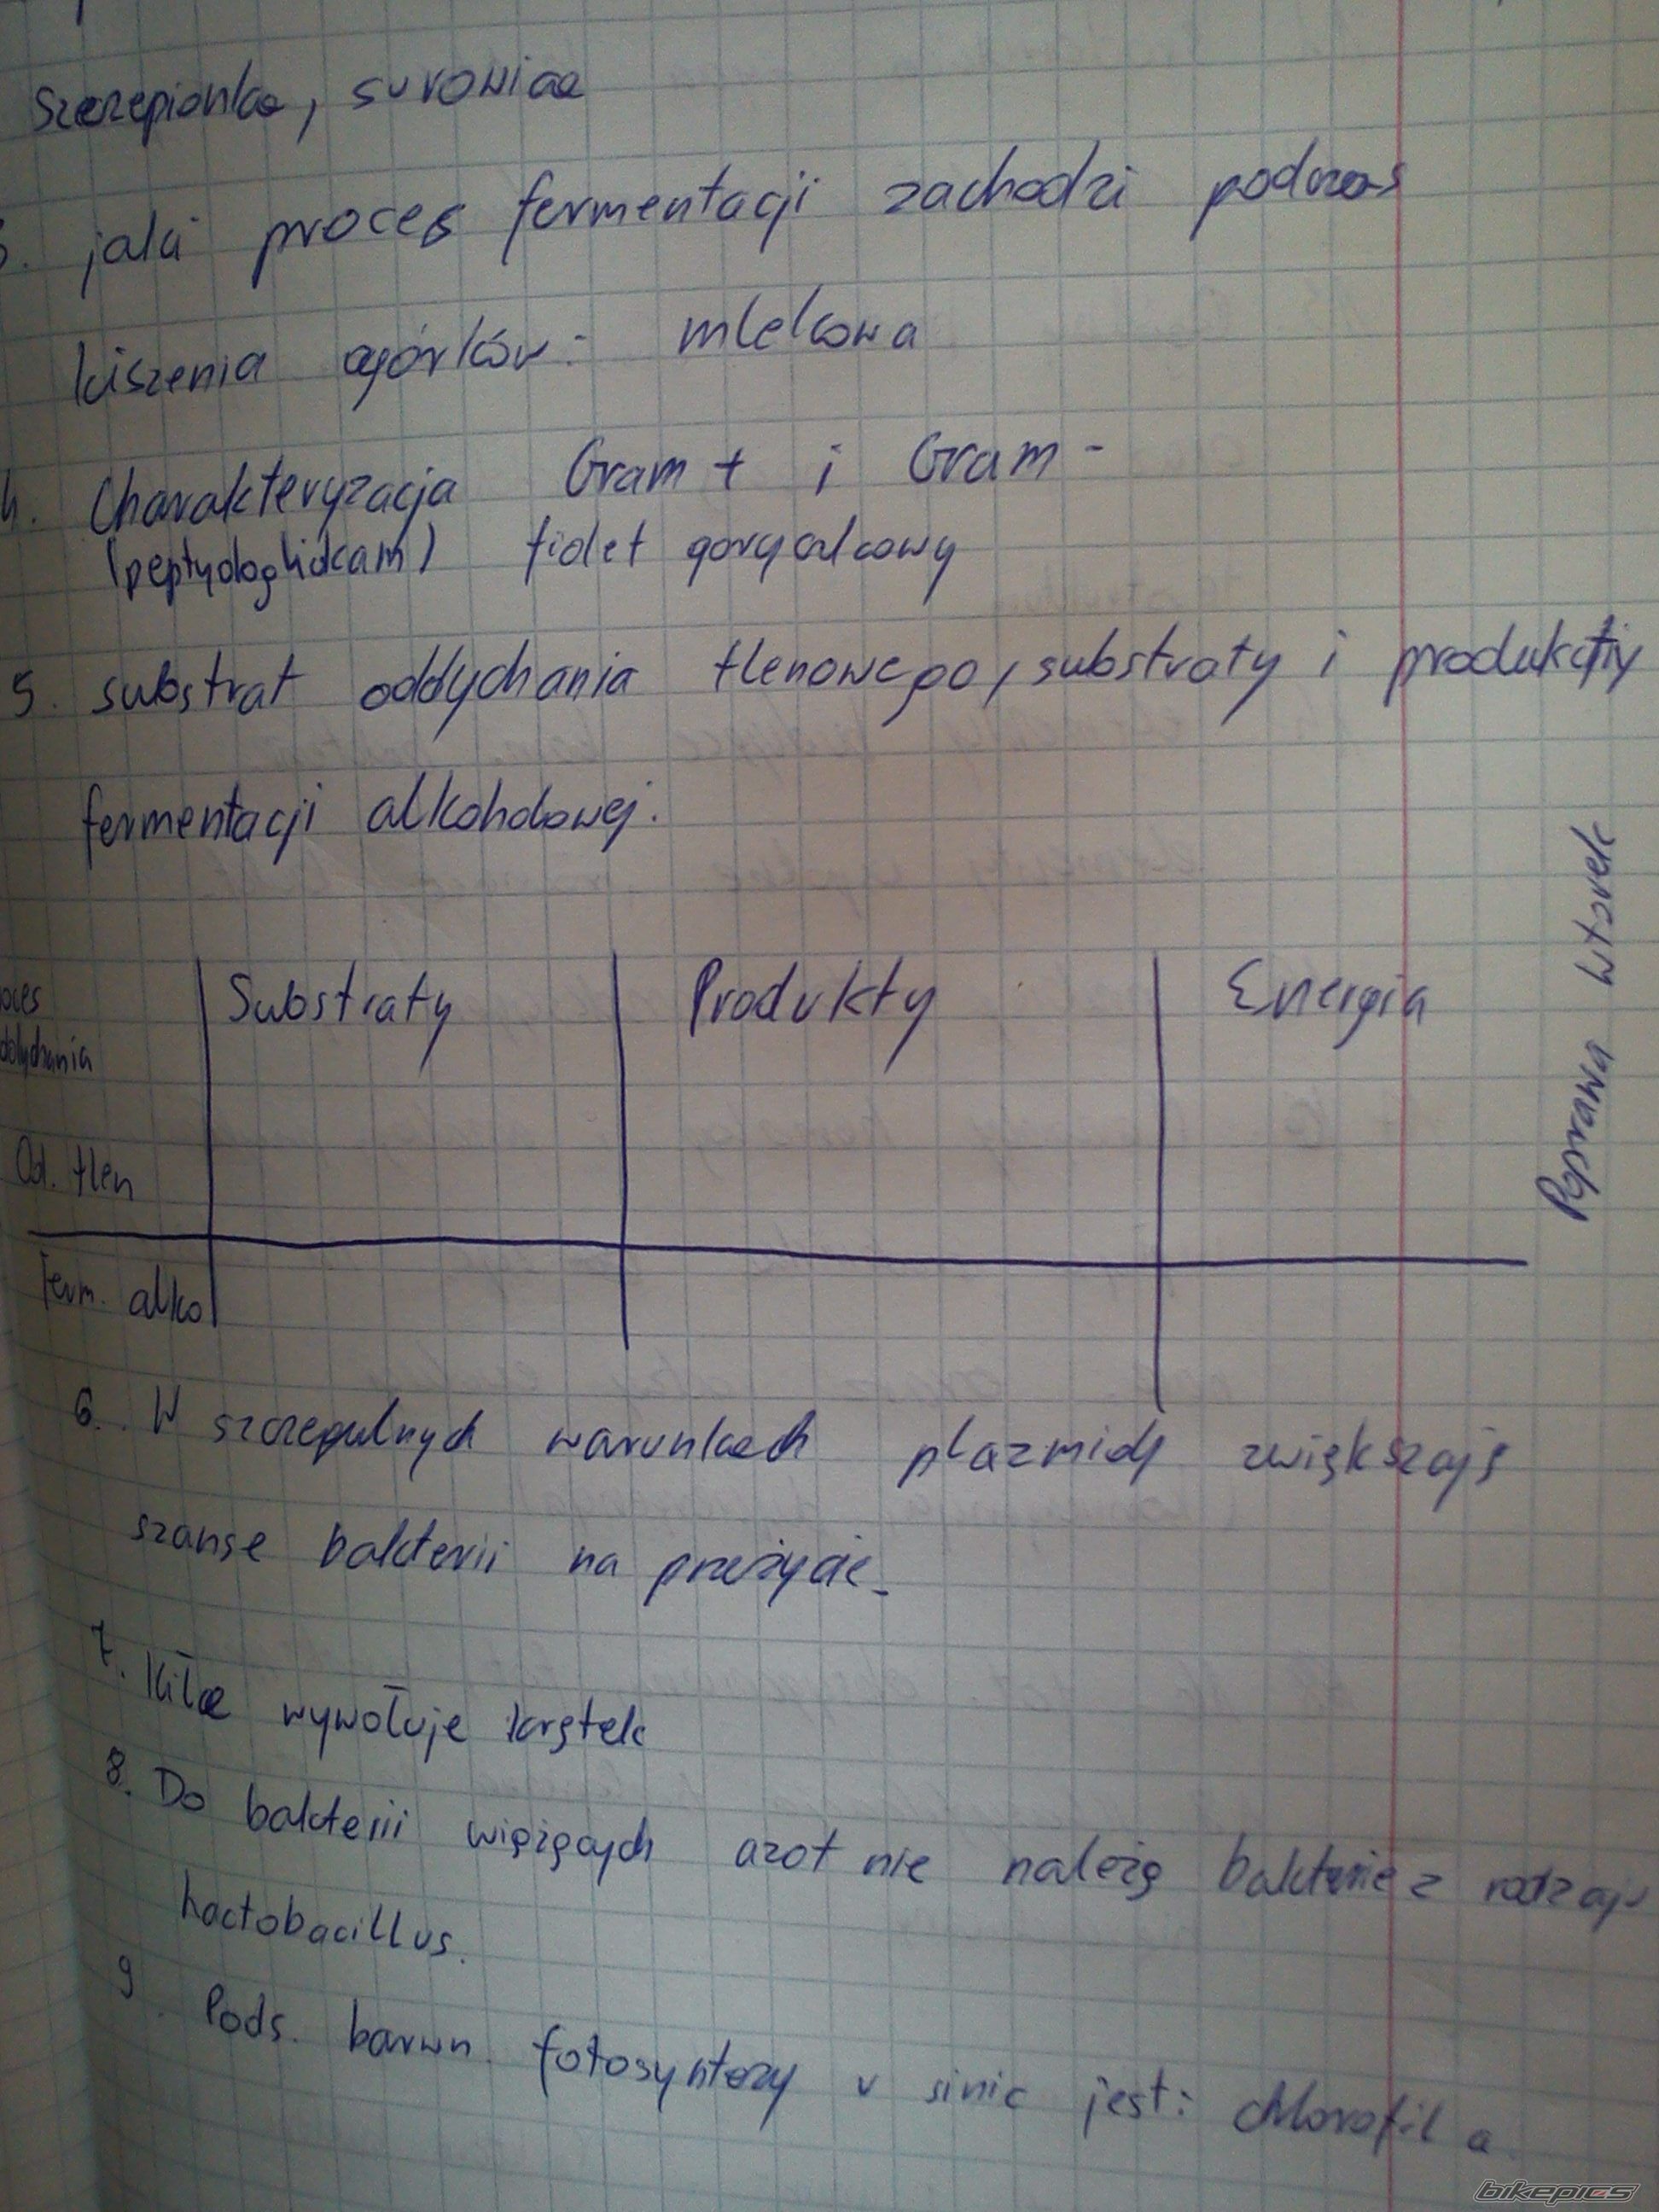 Szczepionka, surowica
3. jaki proces fermentacji zachodzi podczas
kiszenia ogórków - mlekowa
4. Charakteryzacja Gram + i Gram -
(peptydoglikan) fiolet goryczkowy
5. substrat oddychania tlenowego, substraty i produkty
fermentacji alkoholowej.
oces Substraty Produkty Energia
ddychania
Od. tlen
Ferm. alko
Poprawa wtorek
6. W szczegulnych warunkach plazmidy zwiększają
szanse bakterii na przeżycie.
7. Kiłę wywołuje krętek
8. Do bakterii wiążących azot nie należą bakterie z rodzaju
Lactobacillus.
9. Pods. barwn. fotosyntezy u sinic jest: chlorofil a
bikepics